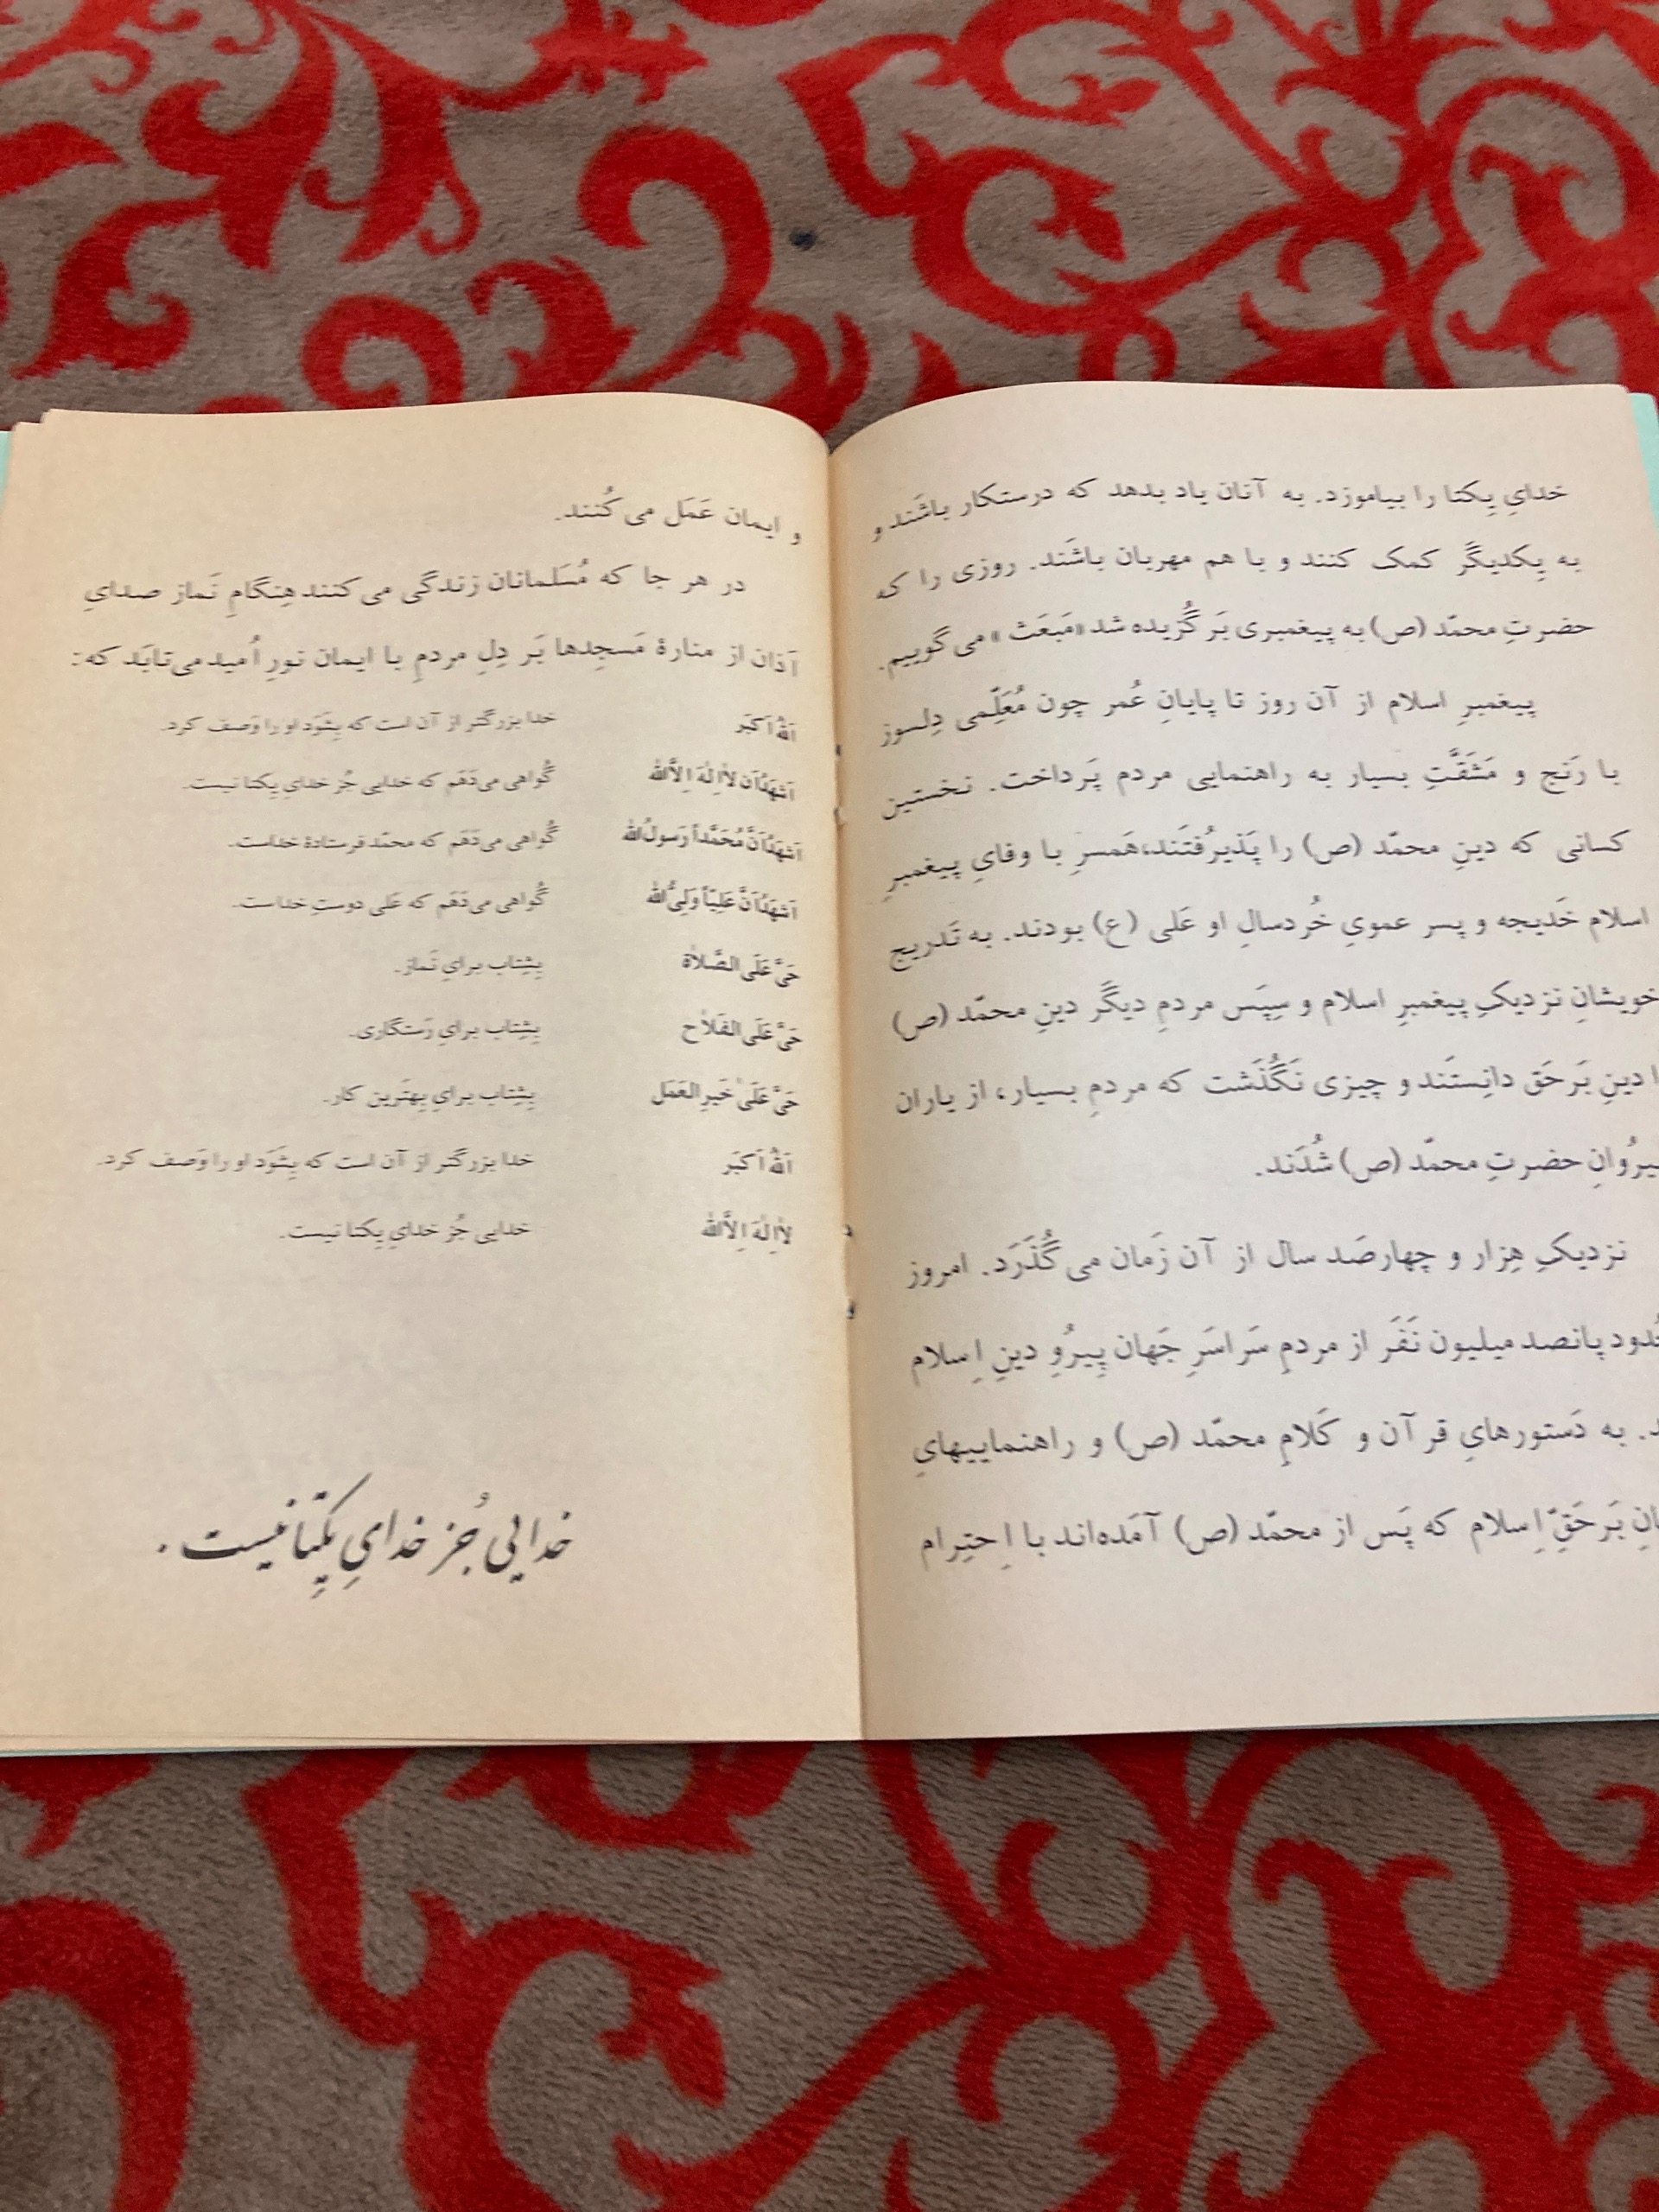 خدایِ یِکتا را بیاموزد. به آنان یاد بدهد که درستکار باشَند و
به یِکدیگَر کمک کنند و با هم مهربان باشَند. روزی را که
حضرتِ محمّد (ص) به پیغمبری بَر گُزیده شد «مَبعَث» می گوییم.
پیغمبرِ اسلام از آن روز تا پایانِ عُمر چون مُعَلِّمی دِلسوز
با رَنج و مَشَقَّتِ بسیار به راهنمایی مردم پَرداخت. نخستین
کسانی که دینِ محمّد (ص) را پَذیرُفتَند، هَمسرِ با وفایِ پیغمبرِ
اسلام خَدیجه و پسر عمویِ خُردسالِ او عَلی (ع) بودند. به تَدریج
خویشانِ نزدیکِ پیغمبرِ اسلام و سِپَس مردمِ دیگَر دینِ محمّد (ص)
دینِ بَر حَق دانِستَند و چیزی نَگُذَشت که مردمِ بسیار، از یاران
حضرتِ محمّد (ص) شُدَند.
نزدیکِ هِزار و چهارصَد سال از آن زَمان می گُذَرَد. امروز
پانصد میلیون نَفَر از مردمِ سَراسَرِ جَهان پِیرُوِ دینِ اِسلام
به دَستورهایِ قرآن و کَلامِ محمّد (ص) و راهنماییهایِ
بَر حَقِّ اِسلام که پَس از محمّد (ص) آمَده‌اند با اِحتِرام
و ایمان عَمَل می کُنند.
در هر جا که مُسَلمانان زندگی می کنند هِنگامِ نَماز صدایِ
آذان از منارهٔ مَسجِدها بَر دِلِ مردمِ با ایمان نورِ اُمید می‌تابَد که:
اَللهُ اَکبَر خدا بزرگتر از آن است که بِشَوَد او را وَصف کرد.
اَشهَدُ اَن لااِلٰهَ اِلاَّالله گُواهی می‌دَهَم که خدایی جُز خدایِ یِکتا نیست.
اَشهَدُ اَنَّ مُحَمَّداً رَسولُ الله گُواهی می‌دَهَم که محمّد فرستادهٔ خداست.
اَشهَدُ اَنَّ عَلِیّاً وَلِیُّ الله گُواهی می‌دَهَم که عَلی دوستِ خداست.
حَیَّ عَلَی الصَّلاٰة بِشِتاب برایِ نَماز.
حَیَّ عَلَی الفَلاٰح بِشِتاب برایِ رَستگاری.
حَیَّ عَلیٰ خَیرِ العَمَل بِشِتاب برایِ بِهتَرین کار.
اَللهُ اَکبَر خدا بزرگتر از آن است که بِشَوَد او را وَصف کرد.
لااِلٰهَ اِلاَّالله خدایی جُز خدایِ یِکتا نیست.
خدایی جُز خدایِ یِکتا نیست.